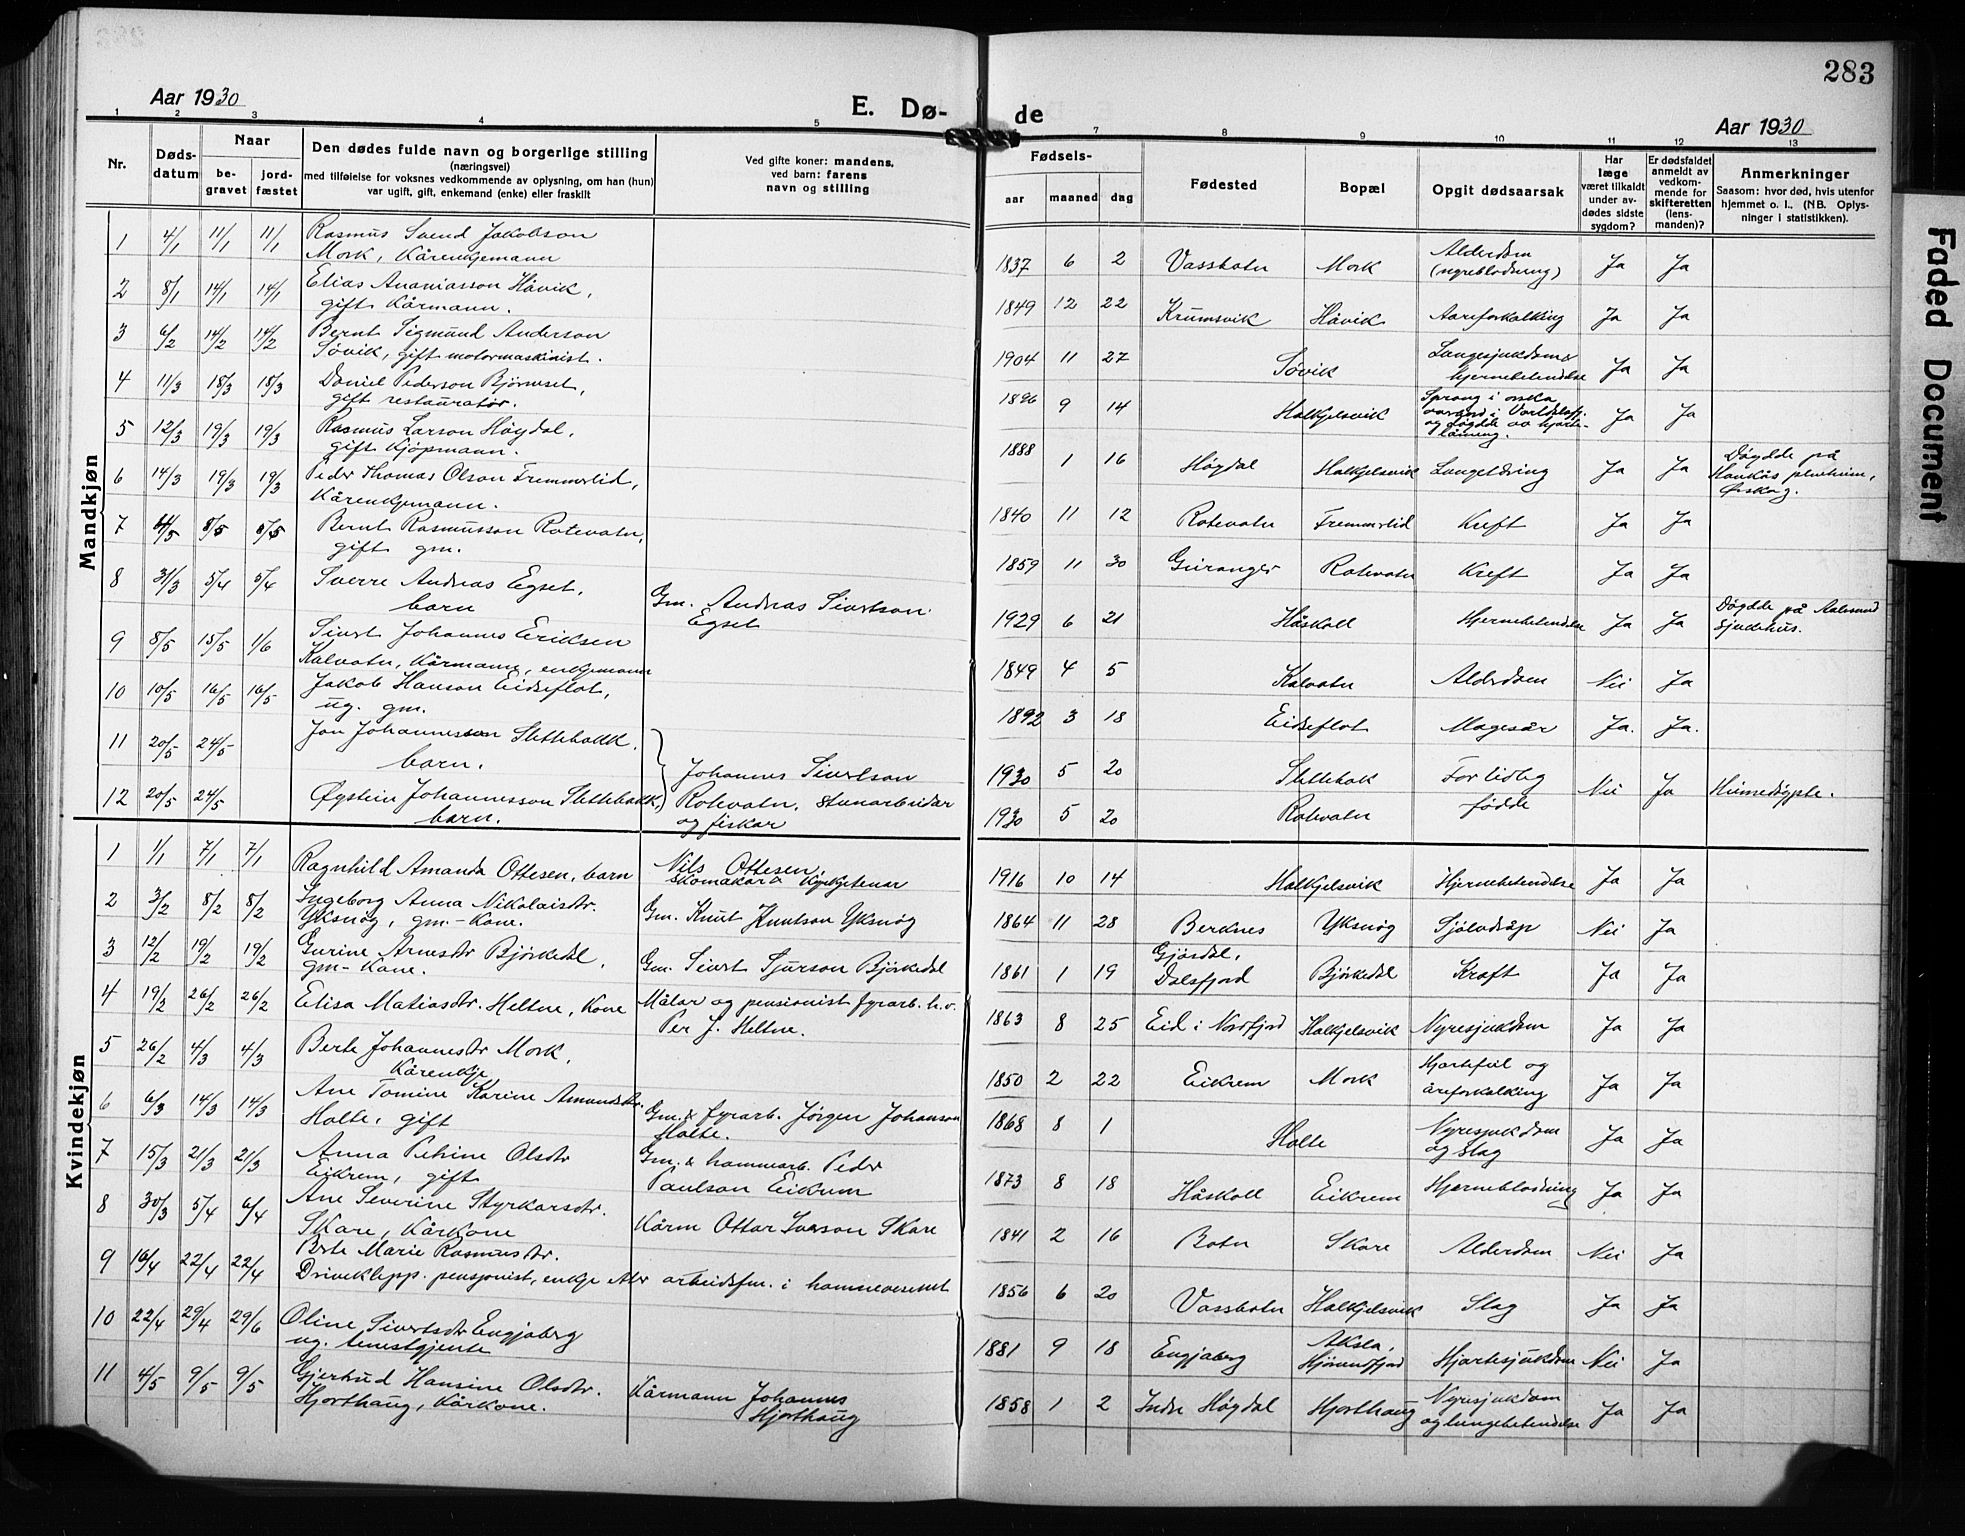 283
Aar 1930
E. Dø-
de
Aar 1930
1 2 3 4 5 7 8 9 10 11 12 13
Nr.
Døds-
datum
Naar
be-
gravet
jord-
fæstet
Den dødes fulde navn og borgerlige stilling
(næringsvei)
med tilføielse for voksnes vedkommende av oplysning, om han (hun)
var ugift, gift, enkemand (enke) eller fraskilt
Ved gifte koner: mandens,
ved barn: farens
navn og stilling
Fødsels-
aar maaned dag
Fødested
Bopæl
Opgit dødsaarsak
Har
læge
været tilkaldt
under av-
dødes sidste
sygdom?
Er dødsfaldet
anmeldt av
vedkom-
mende for
skifteretten
(lens-
manden)?
Anmerkninger
Saasom: hvor død, hvis utenfor
hjemmet o. l., (NB. Oplys-
ninger i statistikken).
Mandkjøn
1 4/1 11/1 11/1 Rasmus Svend Jakobson
Mork, Kårenkjemann
1837 6 2 Vassbotn Mork Alderdom
(nyreblødning) Ja Ja
2 8/1 14/1 14/1 Elias Ananiasson Håvik,
gift Kårmann.
1849 12 22 Krumsvik Håvik Aareforkalking Ja Ja
3 6/2 14/2 14/2 Bernt Sigmund Anderson
Søvik, gift motormaskinist.
1904 11 27 Søvik Lungesjukdom &
hjernebetendelse Ja Ja
4 11/3 18/3 18/3 Daniel Pederson Bjørneset,
gift restauratør.
1896 9 14 Halkjelsvik Sprang i
og døgdde av hjarte-
låming. Ja Ja
5 12/3 19/3 19/3 Rasmus Larson Høgdal,
gift Kjøpmann.
1888 1 16 Høgdal Halkjelsvik Ja Ja Døgdde på
Haukås pleiheim,
Ørskog.
6 14/3 19/3 19/3 Peder Thomas Olson Fremmerlid,
Kårenkjemann.
1840 11 12 Rotevatn Fremmerlid Kreft Ja Ja
7 8/5 Bernt Rasmusson Rotevatn,
gift gm.
1859 11 30 Geiranger Rotevatn Kreft Ja Ja
8 31/3 5/4 5/4 Sverre Andreas Egset,
barn
Gm. Andreas Sivertson
Egset
1929 6 21 Håskoll Hjernebetendelse Ja Ja Døgdde på Aalesund
sjukehus.
9 8/5 15/5 1/6 Sivert Johannes Eriksen
Kalvatn, Kårmann, enkjemann
1849 4 5 Kalvatn Alderdom Nei Ja
10 10/5 16/5 16/5 Jakob Hanson Eidseflot,
ug. gm.
1892 3 18 Eidseflot Magesår Ja. Ja.
11 20/5 24/5 Jon Johannesson Slettebakk,
barn.
12 20/5 24/5 Øystein Johannesson Slettebakk,
barn.
Johannes Sivertson
Rotevatn, steinarbeidar
og fiskar
1930 5 20 Slettebak For tidleg Nei Ja Heimedøypte.
1930 5 20 Rotevatn fødde
Kvindekjøn
1 1/1 7/1 7/1 Ragnhild Amanda Ottesen, barn
Nils Ottesen,
skomakar & Kyrkjetenar
1916 10 14 Halkjelsvik Hjernebetendelse Ja Ja
2 3/2 8/2 8/2 Ingeborg Anna Nikolaisdtr.
Yksnøy, gm-Kone.
Gm. Knut Knutson Yksnøy
1864 11 28 Berknes Yksnøy Sjølvdråp Nei Ja
3 12/2 19/2 19/2 Gurine Arnesdtr Bjørkedal,
gm-Kone.
Gm. Sivert Sjurson Bjørkedal
1861 1 19 Gjøsdal,
Dalsfjord Bjørkedal Kraft Ja Ja
4 19/2 26/2 26/2 Elisa Matiasdtr. Heltne, Kone
Målar og pensionist fyrarb. h.v.
Per J. Heltne.
1863 8 25 Eid i Nordfjord Halkjelsvik Nyresjukdom Ja Ja
5 26/2 4/3 4/3 Berte Johannesdtr Mork,
Kårenkje
1850 2 22 Eikrem Mork Hjartefeil og
åreforkalking Ja Ja
6 6/3 14/3 14/3 Ane Tomine Karine Amundsdtr.
Holte, gift
Gm. & fyrarb. Jørgen Johanson
Holte.
1868 8 1 Holte Nyresjukdom
og slag Ja Ja
7 15/3 21/3 21/3 Anna Petrine Olsdtr
Eikrem, gift
Gm. & hamnearb. Peder
Paulson Eikrem
1873 8 18 Håskoll Eikrem Hjerneblødning Ja Ja
8 30/3 5/4 6/4 Ane Severine Styrkarsdtr.
Skare, Kårkone
Kårm Ottar Iverson Skare
1841 2 16 Botn Skare Alderdom Nei Ja
9 16/4 22/4 22/4 Berte Marie Rasmusdtr.
Driveklepp. pensjonist, enkje etter arbeidsfm. i hamnevesenet
1856 6 20 Vassbotn Halkjelsvik Slag Ja Ja
10 22/4 29/4 29/6 Oline Sivertsdtr Engjaberg
ug. tenestgjente
1881 9 18 Engjaberg Aksla,
Hjørundfjord Hjartesjukdom Nei Ja
11 4/5 9/5 9/5 Gjertrud Hansine Olsdtr.
Hjorthaug, Kårkone.
Kårmann Johannes
Hjorthaug
1858 1 2 Indre Høgdal Hjorthaug Nyresjukdom
og lungebetendelse Ja Ja
Faded Document